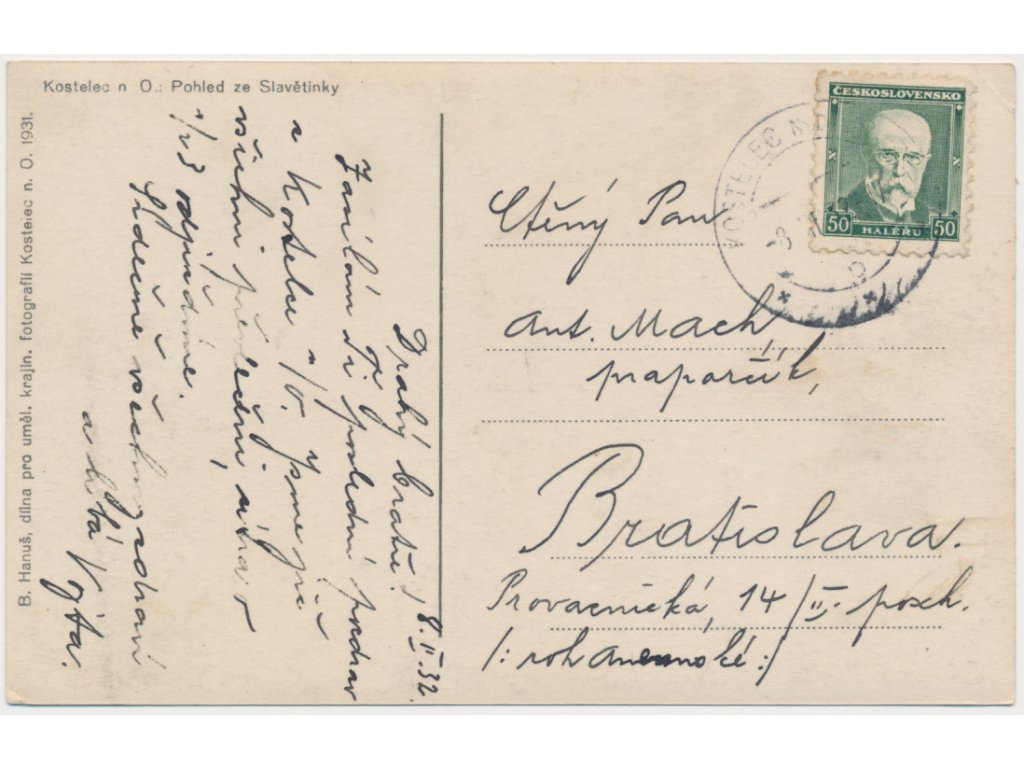 Kostelec n O.: Pohled ze Slavětinky
B. Hanuš, dílna pro uměl. krajin. fotografií Kostelec n. O. 1931.
Drahý bratře! 8.II.32.
Zasílám Ti poslední pozdrav
z Kostelce n/O. Jsme již
všichni převlečni, zítra v
odjíždíme.
Srdečně všechny zdraví
a líbá Vojta.
ČESKOSLOVENSKO
50 HALÉŘŮ 50
KOSTELEC N
8
Ctěný Pan
Ant. Mach
praporčík,
Bratislava.
Provaznická, 14/II. posch.
/: roh :/